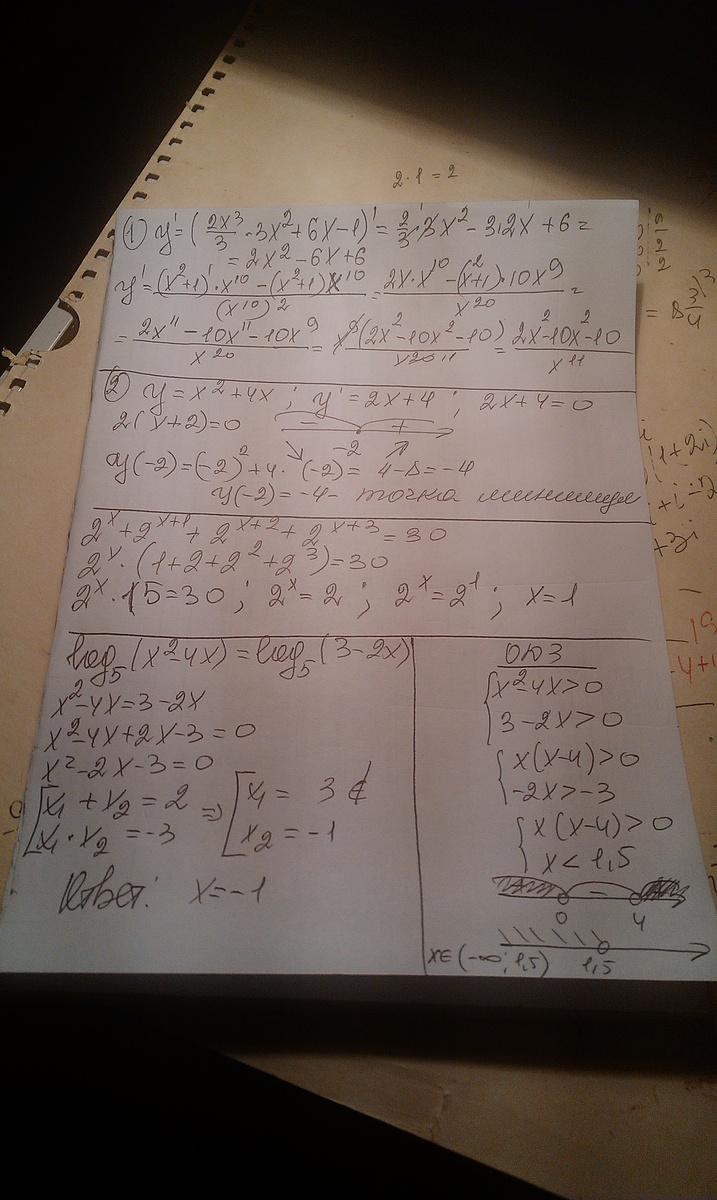 2·1=2
① y' = (2x³/3 - 3x² + 6x - 1)' = 2/3·3x² - 3·2x + 6 =
= 2x² - 6x + 6
y' = ((x²+1)'·x¹⁰ - (x²+1)x¹⁰)/(x¹⁰)² = (2x·x¹⁰ - (x²+1)·10x⁹)/x²⁰ =
= (2x¹¹ - 10x¹¹ - 10x⁹)/x²⁰ = x⁹(2x² - 10x² - 10)/x²⁰ ¹¹ = (2x² - 10x² - 10)/x¹¹
② y = x² + 4x ; y' = 2x + 4 ; 2x + 4 = 0
2(x+2) = 0 - +
-2
y(-2) = (-2)² + 4·(-2) = 4 - 8 = -4
y(-2) = -4 - точка минимум
2ˣ + 2ˣ⁺¹ + 2ˣ⁺² + 2ˣ⁺³ = 30
2ˣ·(1 + 2 + 2² + 2³) = 30
2ˣ·15 = 30 ; 2ˣ = 2 ; 2ˣ = 2¹ ; x = 1
log₅(x² - 4x) = log₅(3 - 2x)
x² - 4x = 3 - 2x
x² - 4x + 2x - 3 = 0
x² - 2x - 3 = 0
[x₁ + x₂ = 2 ⇒ [x₁ = 3 ∉
x₁·x₂ = -3 x₂ = -1
Ответ: x = -1
ОДЗ
{x² - 4x > 0
3 - 2x > 0
{x(x-4) > 0
-2x > -3
{x(x-4) > 0
x < 1,5
-
0 4
x ∈ (-∞; 1,5) 1,5
= 8 3/4
(1+2i)
+3i